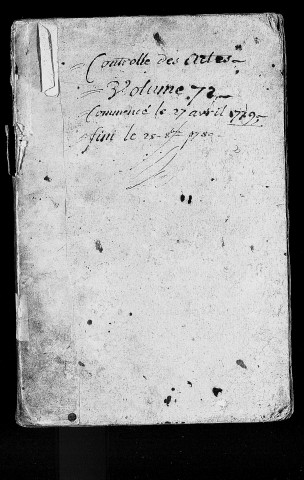 Controlle des Actes
Volume 72
Commencé le 27 avril 1749
fini le 25